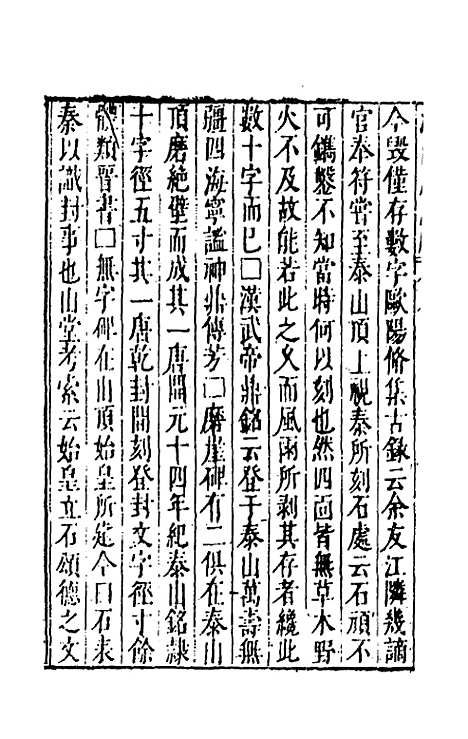 今毀僅存數字歐陽脩集古錄云余友江隣幾謫
官奉符嘗至泰山頂上視秦所刻石處云石頑不
可鐫鑿不知當時何以刻也然四面皆無草木野
火不及故能若此之久而風雨所剥其存者纔此
數十字而已囗漢武帝鼎銘云登于泰山萬壽無
疆四海寧謐神鼎傳芳囗磨崖碑有二俱在泰山
頂磨絶壁而成其一唐開元十四年紀泰山銘隸
十字徑五寸其一唐乾封間刻登封文字徑寸餘
體類晋書囗無字碑在山頂始皇所建今曰石表
秦以識封事也山堂考索云始皇立石頌德之文